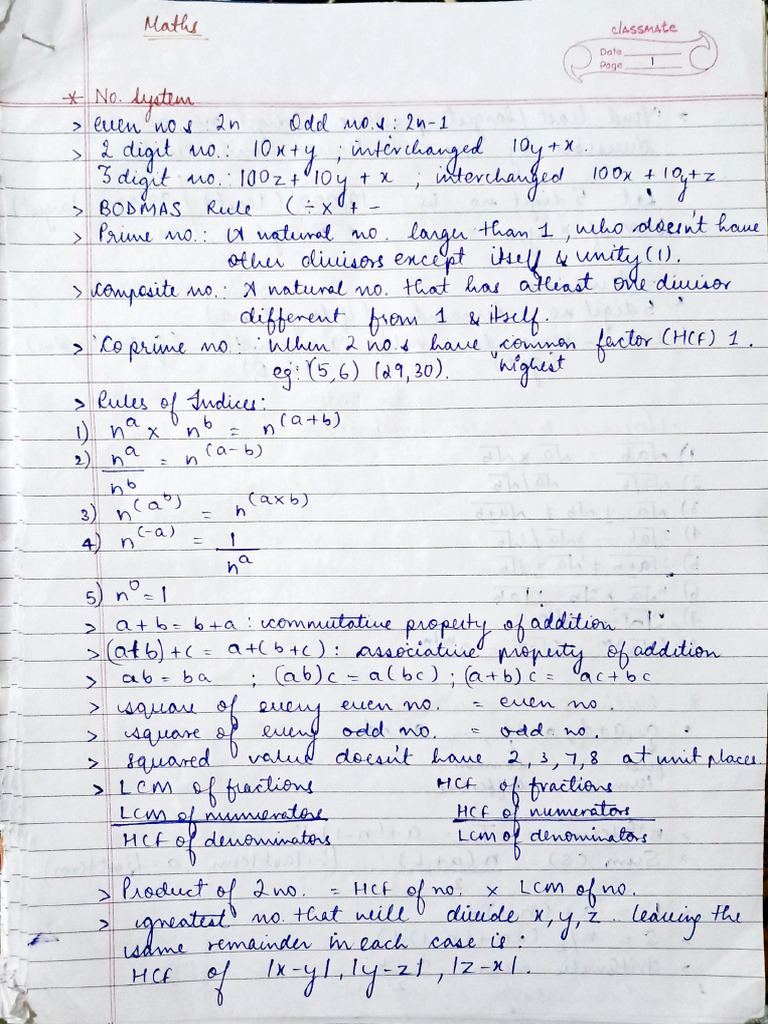 Maths
classmate
Date
Page 1
* No. System
> even no s : 2n Odd no.s : 2n-1
> 2 digit no. : 10x+y ; interchanged 10y+x.
3 digit no. : 100z + 10y + x ; interchanged 100x + 10y+z
> BODMAS Rule ( ÷ x + -
> Prime no. : A natural no. larger than 1, who doesn't have
other divisors except itself & unity (1).
> Composite no. : A natural no. that has atleast one divisor
different from 1 & itself.
> Coprime no : When 2 no.s have common factor (HCF) 1.
eg: (5,6) (29,30). "highest
> Rules of Indices :
1) n^a x n^b = n^(a+b)
2) n^a / n^b = n^(a-b)
3) n^(a^b) = n^(axb)
4) n^(-a) = 1 / n^a
5) n^0 = 1
> a+b = b+a : commutative property of addition
> (a+b)+c = a+(b+c) : associative property of addition
> ab = ba ; (ab)c = a(bc) ; (a+b)c = ac+bc
> square of every even no. = even no.
> square of every odd no. = odd no.
> squared value doesn't have 2, 3, 7, 8 at unit places.
> LCM of fractions HCF of fractions
LCM of numerators HCF of numerators
HCF of denominators LCM of denominators
> Product of 2 no. = HCF of no. x LCM of no.
> greatest no. that will divide x, y, z leaving the
same remainder in each case is :
HCF of |x-y|, |y-z|, |z-x|.